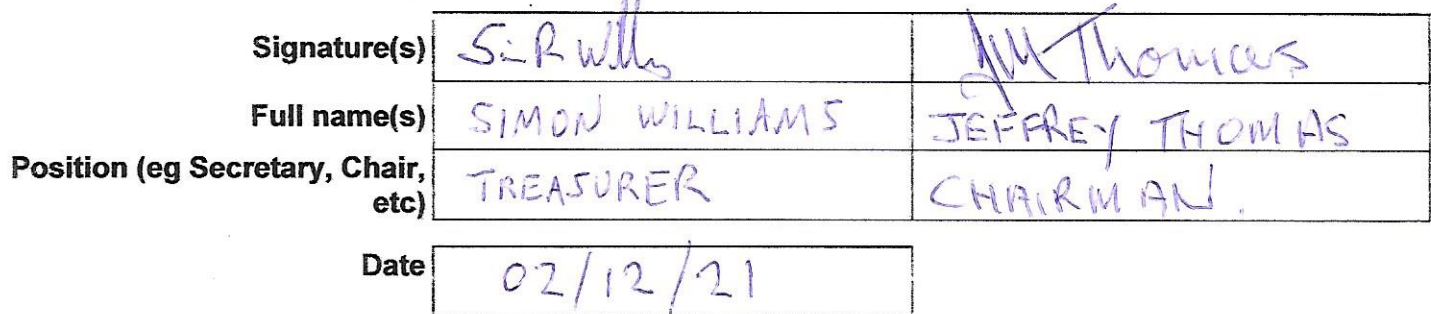 Signature(s) S R Will Thomas
Full name(s) SIMON WILLIAMS JEFFREY THOMAS
Position (eg Secretary, Chair, etc) TREASURER CHAIRMAN.
Date 02/12/21